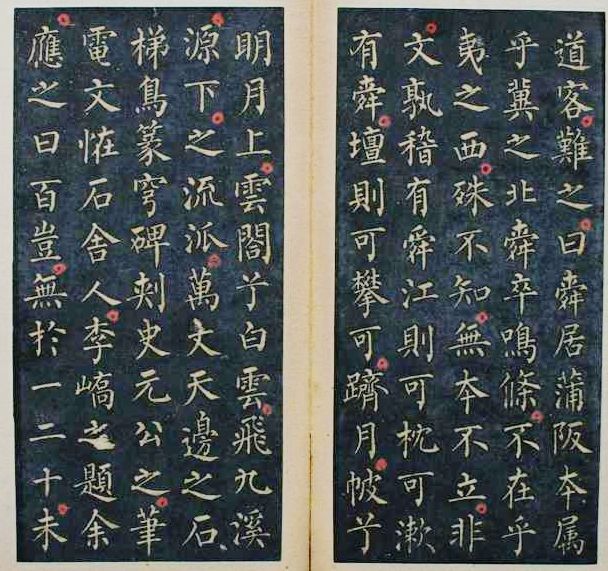 道客難之曰舜居蒲阪本属
乎冀之北舜卒鳴條不在乎
夷之西殊不知無本不立非
文孰稽有舜江則可枕可漱
有舜壇則可攀可躋月帔丫
明月上雲閣丫白雲飛九溪
源下之流派萬丈天邊之石
梯鳥篆穹碑刾史元公之筆
電文恠石舍人李嶠之題余
應之曰百豈無於一二十未